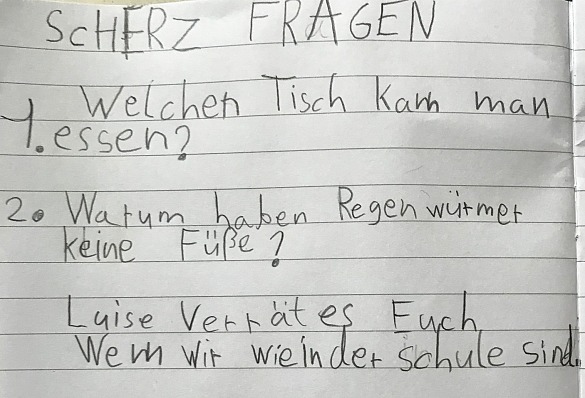 SCHERZ FRAGEN
Welchen Tisch kann man
1. essen?
2. Warum haben Regenwürmer
keine Füße?
Luise Verrät es Euch
Wenn wir wieinder schule sind.